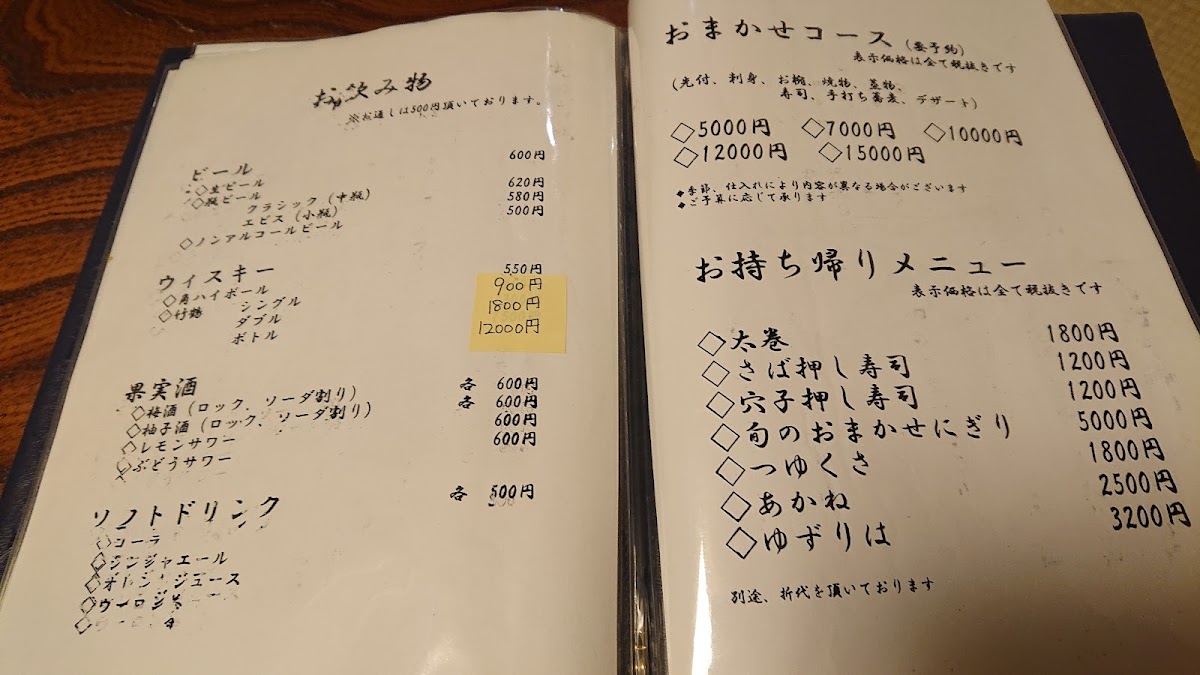 お飲み物
※お通しは500円頂いております。
ビール
◇生ビール 600円
◇瓶ビール
クラシック(中瓶) 620円
エビス(小瓶) 580円
◇ノンアルコールビール 500円
ウイスキー
◇角ハイボール 550円
◇竹鶴 シングル 900円
ダブル 1800円
ボトル 12000円
果実酒
◇梅酒(ロック、ソーダ割り) 各 600円
◇柚子酒(ロック、ソーダ割り) 各 600円
◇レモンサワー 600円
◇ぶどうサワー 600円
ソフトドリンク 各 500円
◇コーラ
◇ジンジャエール
◇オレンジジュース
おまかせコース(要予約)
表示価格は全て税抜きです
(先付、刺身、お椀、焼物、蒸物、
寿司、手打ち蕎麦、デザート)
◇5000円 ◇7000円 ◇10000円
◇12000円 ◇15000円
◆季節、仕入れにより内容が異なる場合がございます
◆ご予算に応じて承ります
お持ち帰りメニュー
表示価格は全て税抜きです
◇太巻 1800円
◇さば押し寿司 1200円
◇穴子押し寿司 1200円
◇旬のおまかせにぎり 5000円
◇つゆくさ 1800円
◇あかね 2500円
◇ゆずりは 3200円
別途、折代を頂いております